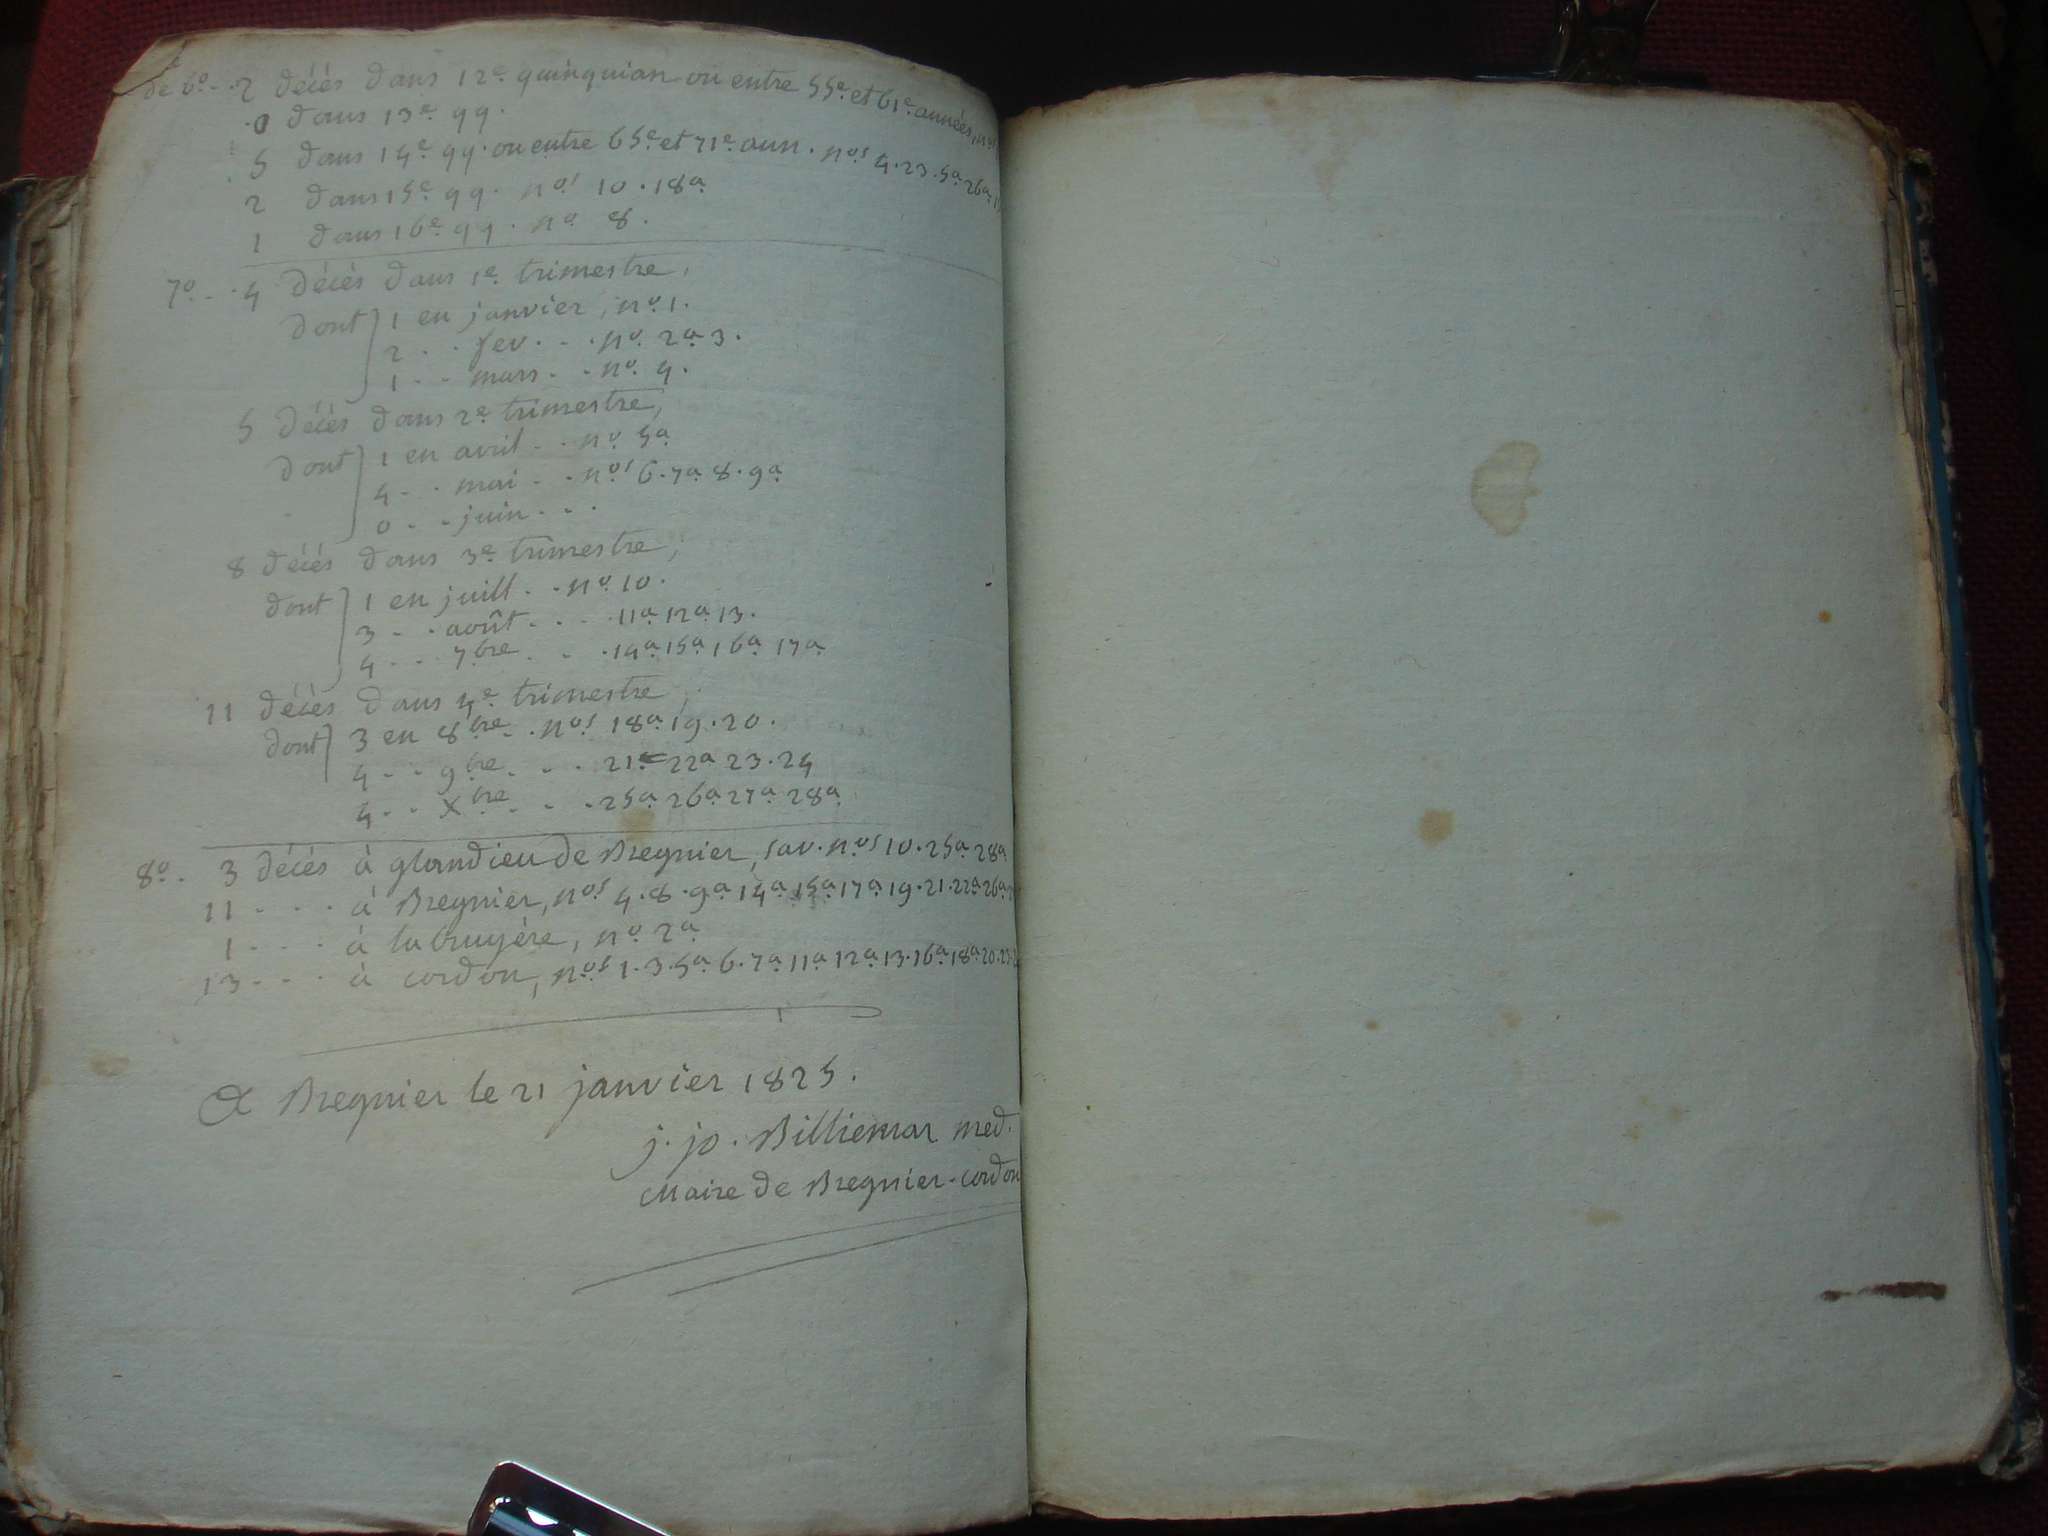 de 6º - . 2 décès dans 12e quinquian ou entre 55e et 61e années, nos
0 dans 13e qq.
5 dans 14e qq. ou entre 65e et 71e ann. nos 4.23.5a 26a
2 dans 15e qq. nos 10.18a
1 dans 16e qq. no 8.
7º - . 4 décès dans 1e trimestre,
dont } 1 en janvier, no 1.
2 . . fev. . . no 2a 3.
1 . . mars . . no 4.
5 décès dans 2e trimestre,
dont } 1 en avril . . no 5a
4 . . mai . . nos 6.7a 8.9a
0 . . juin . . .
8 décès dans 3e trimestre,
dont } 1 en juill . . no 10.
3 . . août . . . 11a 12a 13.
4 . . 7bre . . . 14a 15a 16a 17a
11 décès dans 4e trimestre,
dont } 3 en 8bre . . nos 18a 19.20.
4 . . 9bre . . . 21 22a 23.24
4 . . Xbre . . . 25a 26a 27a 28a
8º . 3 décès à glandieu de Bregnier, sav. nos 10.25a 28a
11 . . . à Bregnier, nos 4.8.9a 14a 15a 17a 19.21.22a 26a
1 . . . à la bruyère, no 2a
13 . . . à cordon, nos 1.3.5a 6.7a 11a 12a 13.16a 18a 20.23.
A Bregnier le 21 janvier 1825.
j. jo. Billiemar med.
Maire de Bregnier-cordon